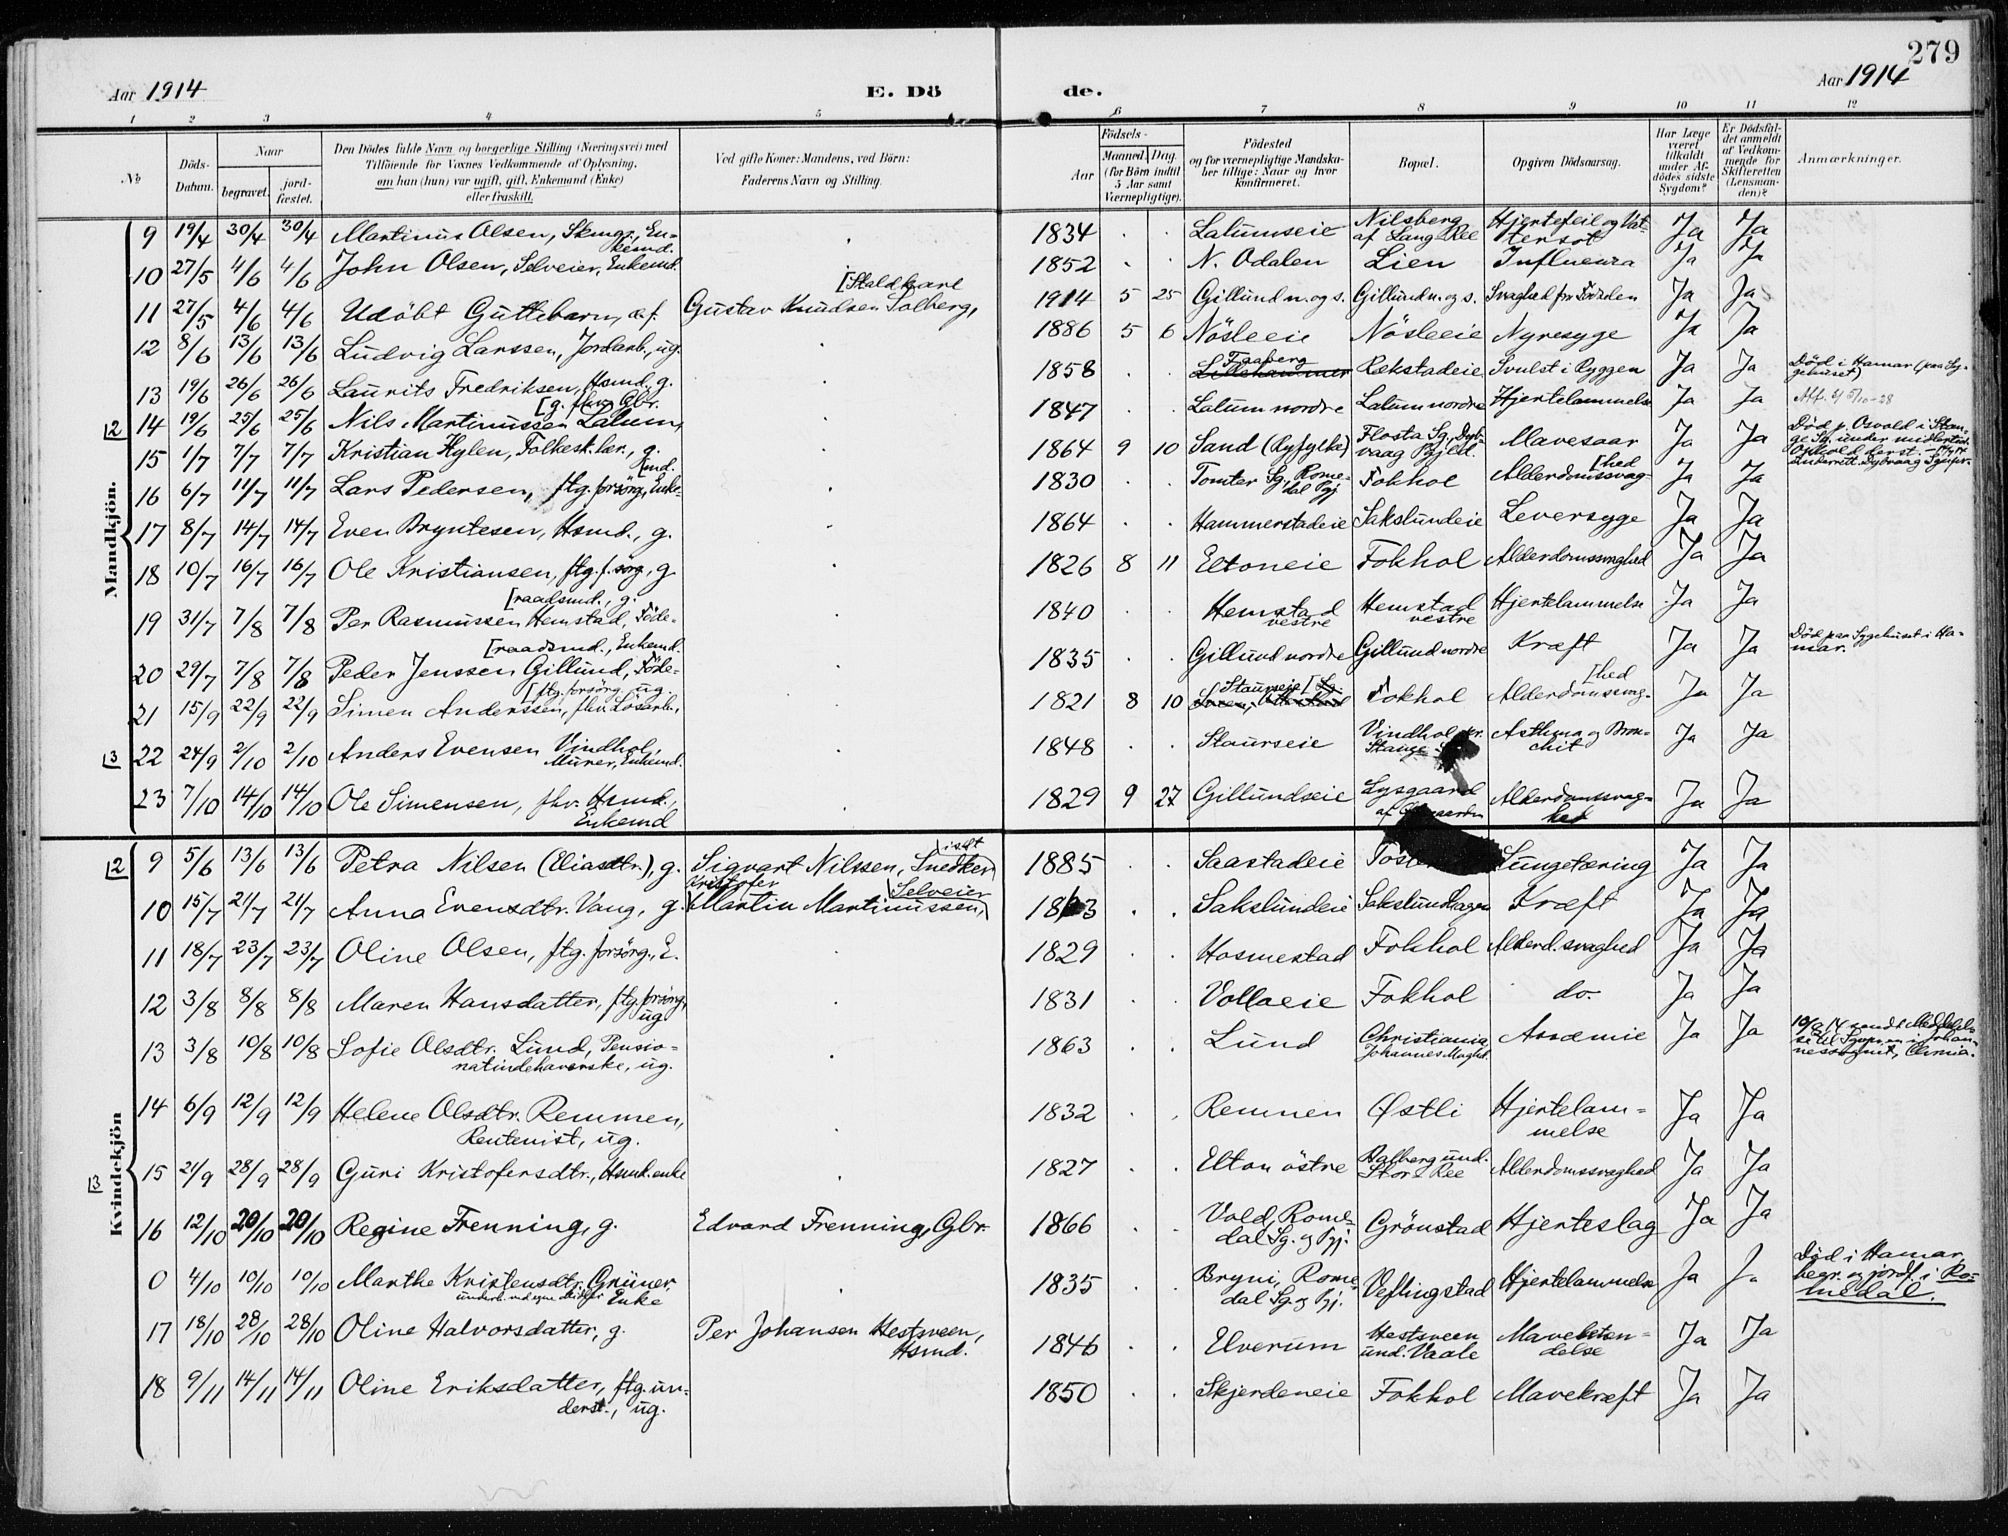 279
Aar 1914 E. Dö de. Aar 1914
1 2 3 4 5 6 7 8 9 10 11 12
№ Döds-Datum. Naar begravet. jord-fæstet. Den Dödes fulde Navn og borgerlige Stilling (Næringsvei) med Tilföiende for Voxnes Vedkommende af Oplysning, om han (hun) var ugift, gift, Enkemand (Enke) eller fraskilt. Ved gifte Koner: Mandens, ved Börn: Faderens Navn og Stilling. Aar Födsels- Maaned. Dag. (for Börn indtil 5 Aar samt Værnepligtige). Födested og for værnepligtige Mandskaber tillige: Naar og hvor konfirmeret. Bopæl. Opgiven Dödsaarsag. Har Læge været tilkaldt under Afdödes sidste Sygdom? Er Dödsfaldet anmeldt af Vedkommende for Skifteretten (Lensmanden)? Anmærkninger.
Mandkjön.
9 19/4 30/4 30/4 Martinus Olsen, Skmgr., Enkemd. 1834 Lalumseie Nilsberg af Lang Ree Hjertefeil og Vattersot Ja Ja
10 27/5 4/6 4/6 John Olsen, Selveier, Enkemd. 1852 N. Odalen Lien Influenza Ja Ja
11 27/5 4/6 4/6 Udöbt Guttebarn, af Gustav Knudsen Solberg, [Staldkarl 1914 5 25 Gillund n. og s. Gillund n. og s. Svaghed fra Födselen Ja Ja
12 8/6 13/6 13/6 Ludvig Larssen, Jordarb., ug. 1886 5 6 Nösleeie Nösleeie Nyresyge Ja Ja
13 19/6 26/6 26/6 Laurits Fredriksen, Hsmd., g. 1858 Faaberg Lillehammer Rekstadeie Svulst i Ryggen Ja Ja Död i Hamar (paa Sygehuset)
14 19/6 25/6 25/6 Nils Martinussen Lalum, [g. fhv. Gbr. 1847 Lalum nordre Lalum nordre Hjertelammelse Ja Ja
15 1/7 7/7 7/7 Kristian Hylen, Folkesk.lær., g. 1864 9 10 Sand (Ryfylke) Flosta Sg., Dybvaag Pgjld. Mavesaar Ja Ja Död p. Osvold i Stange Sg. under midlertid. Ophold herst.
16 6/7 11/7 11/7 Lars Pedersen, ftg. forsörg., Enke- [md. 1830 Tomter Sg., Romedal Pgj. Fokhol Alderdomssvag- [hed Ja Ja
17 8/7 14/7 14/7 Even Bryntesen, Hsmd., g. 1864 Hammerstadeie Sakslundeie Leversyge Ja Ja
18 10/7 16/7 16/7 Ole Kristiansen, ftg. f.sörg., g. 1826 8 11 Eltoneie Fokhol Alderdomssvaghed Ja Ja
19 31/7 7/8 7/8 Per Rasmussen Hemstad, Föde- [raadsmd., g. 1840 Hemstad vestre Hemstad vestre Hjertelammelse Ja Ja
20 29/7 7/8 7/8 Peder Jenssen Gillund, Föde- [raadsmd., Enkemd. 1835 Gillund nordre Gillund nordre Kræft Ja Ja Död paa Sygehuset i Hamar.
21 15/9 22/9 22/9 Simen Anderssen, fhv. Lösarb., [ftg. forsörg., ug. 1821 8 10 Staurseie Fokhol Alderdomssvag- [hed Ja Ja
22 24/9 2/10 2/10 Anders Evensen Vindhol, Murer, Enkemd. 1848 Staurseie Vindhol pr. Stange Asthma og Bronchit Ja Ja
23 7/10 14/10 14/10 Ole Simensen, fhv. Hsmd., Enkemd 1829 9 27 Gillundseie Lysgaard Alderdomssvaghed Ja Ja
Kvindekjön
9 5/6 13/6 13/6 Petra Nilsen (Eliasdtr.), g. Sigvart Nilssen, Snedker 1885 Saastadeie Lungetæring Ja Ja
10 15/7 21/7 21/7 Anna Evensdtr. Vang, g. Kristofer Martin Martinussen, Selveier Sakslundeie Sakslundhagen Kræft Ja Ja
11 18/7 23/7 23/7 Oline Olsen, ftg. forsörg., E. 1829 Hosmestad Fokhol Alderd.svaghed Ja Ja
12 3/8 8/8 8/8 Maren Hansdatter, ftg. forsörg., ug 1831 Volloeie Fokhol do. Ja Ja
13 3/8 10/8 10/8 Sofie Olsdtr. Lund, Pensionatindehaverske, ug. 1863 Lund Christiania, Johannes Meghd. Anæmie Ja Ja 10/8 14 sendt Meddelelse til Sgnpr. en i Johannessognet, Chrnia.
14 6/9 12/9 12/9 Helene Olsdtr. Remmen, Rentenist, ug. 1832 Remmen Østli Hjertelammelse Ja Ja
15 21/9 28/9 28/9 Guri Kristofersdtr., Hsmd.enke 1827 Elton östre Balberg und. Stor Ree Alderdomssvaghed Ja Ja
16 12/10 20/10 20/10 Regine Frenning, g. Edvard Frenning, Gbr. 1866 Vold, Romedal Sg. og Pgj. Grönstad Hjerteslag Ja Ja
0 4/10 10/10 10/10 Marthe Kristensdtr. Grüner, underh. ved egne Midler Enke 1835 Bryni, Romedal Sg. og Pgj. Veflingstad Hjertelammelse Ja Ja Död i Hamar, begr. og jordf. i Romedal.
17 18/10 28/10 28/10 Oline Halvorsdatter, g. Per Johansen Hestsveen, Hsmd. 1846 Elverum Hestsveen und. Vaale Mavebetændelse Ja Ja
18 9/11 14/11 14/11 Oline Eriksdatter, ftg. underst., ug. 1850 Skjerdeneie Fokhol Mavekræft Ja Ja